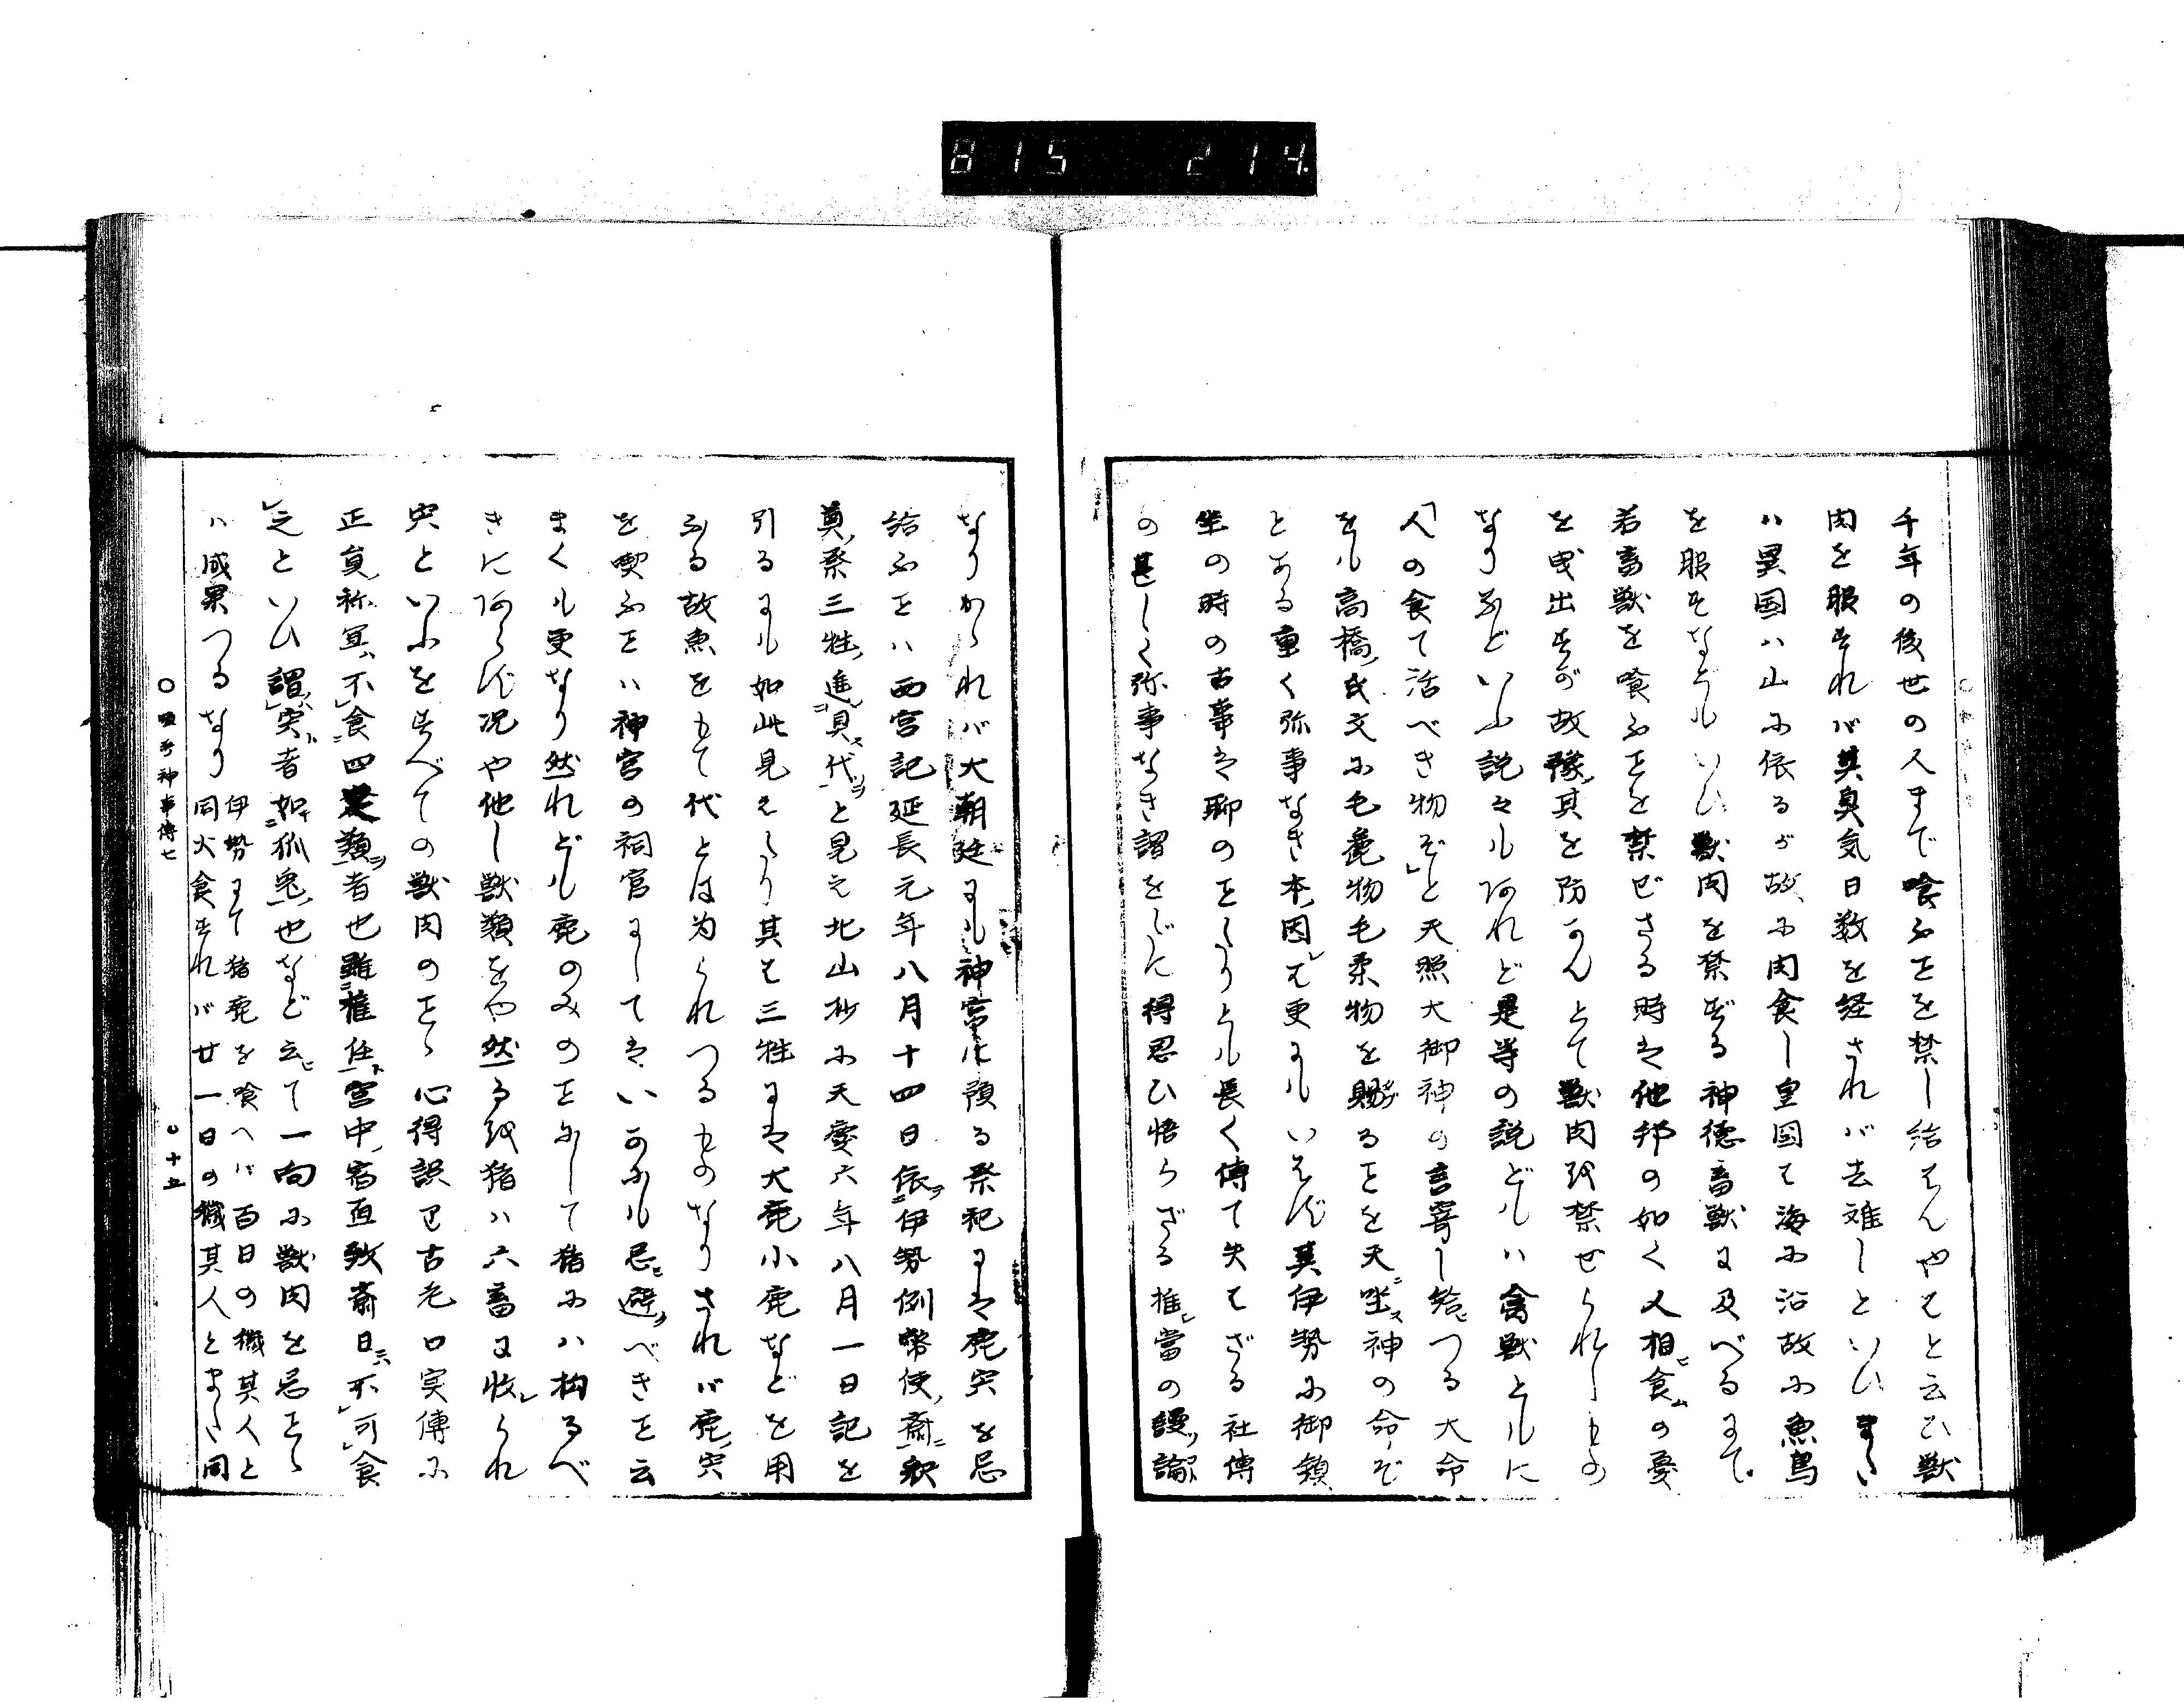 815 214
千年の後世の人まで喰ふ𪜈を禁し給はんやはと云ひ獣
肉を服すれバ其臭気日数を経されバ去難しといひまた
ハ異国ハ山に依るが故に肉食し皇国ハ海に沿故に魚鳥
を服すなともいひ獣肉を禁ずる神徳畜獣に及べるにて
若畜獣を喰ふことを禁ぜさる時は他邦の如く人相食の憂
を曳出すが故豫其を防かんとて獣肉を禁せられしもの
なりなどいふ説々もあれど是等の説どもハ禽獣ともに
人の食て活べき物ぞと天照大御神の言寄し給つる大命
をも高橋氏文に毛麁物毛柔物を賜ることを天坐神の命ぞ
とある重く弥事なき本因は更にもいはず其伊勢に御鎮
坐の時の古事は聊のことたりとも長く傳て失はざる社傳
の甚しく弥事なき謂をしに得思ひ悟らざる推當の謾論
なりかゝれバ大朝廷にも神宮に預る祭祀には鹿宍を忌
給ふことハ西宮記延長元年八月十四日依伊勢例幣使斎釈
奠祭三牲進其代と見え北山抄に天慶六年八月一日記を
引るにも如此見えたり其は三牲には大鹿小鹿などを用
ふる故魚をもて代とは為られつるものなりされバ鹿宍
を喫ふことハ神宮の祠官にしてはいかにも忌避べきこと云
まくも更なり然れども鹿のみのことにして猪にハ拘るべ
きにあらず况や他し獣類をや然るを猪ハ六畜に收られ
宍といふをすべての獣肉のことゝ心得誤て古老口実傳に
正員祢冝不食四足類者也雖権任宮中宿直致斎日不可食
之といひ謂宍者如狐兎也など云て一向に獣肉を忌ことゝ
ハ成果つるなり
伊勢にて猪鹿を喰へバ百日の穢其人と
同火食すれバ廿一日の穢其人とまた同
神事傳七
十五